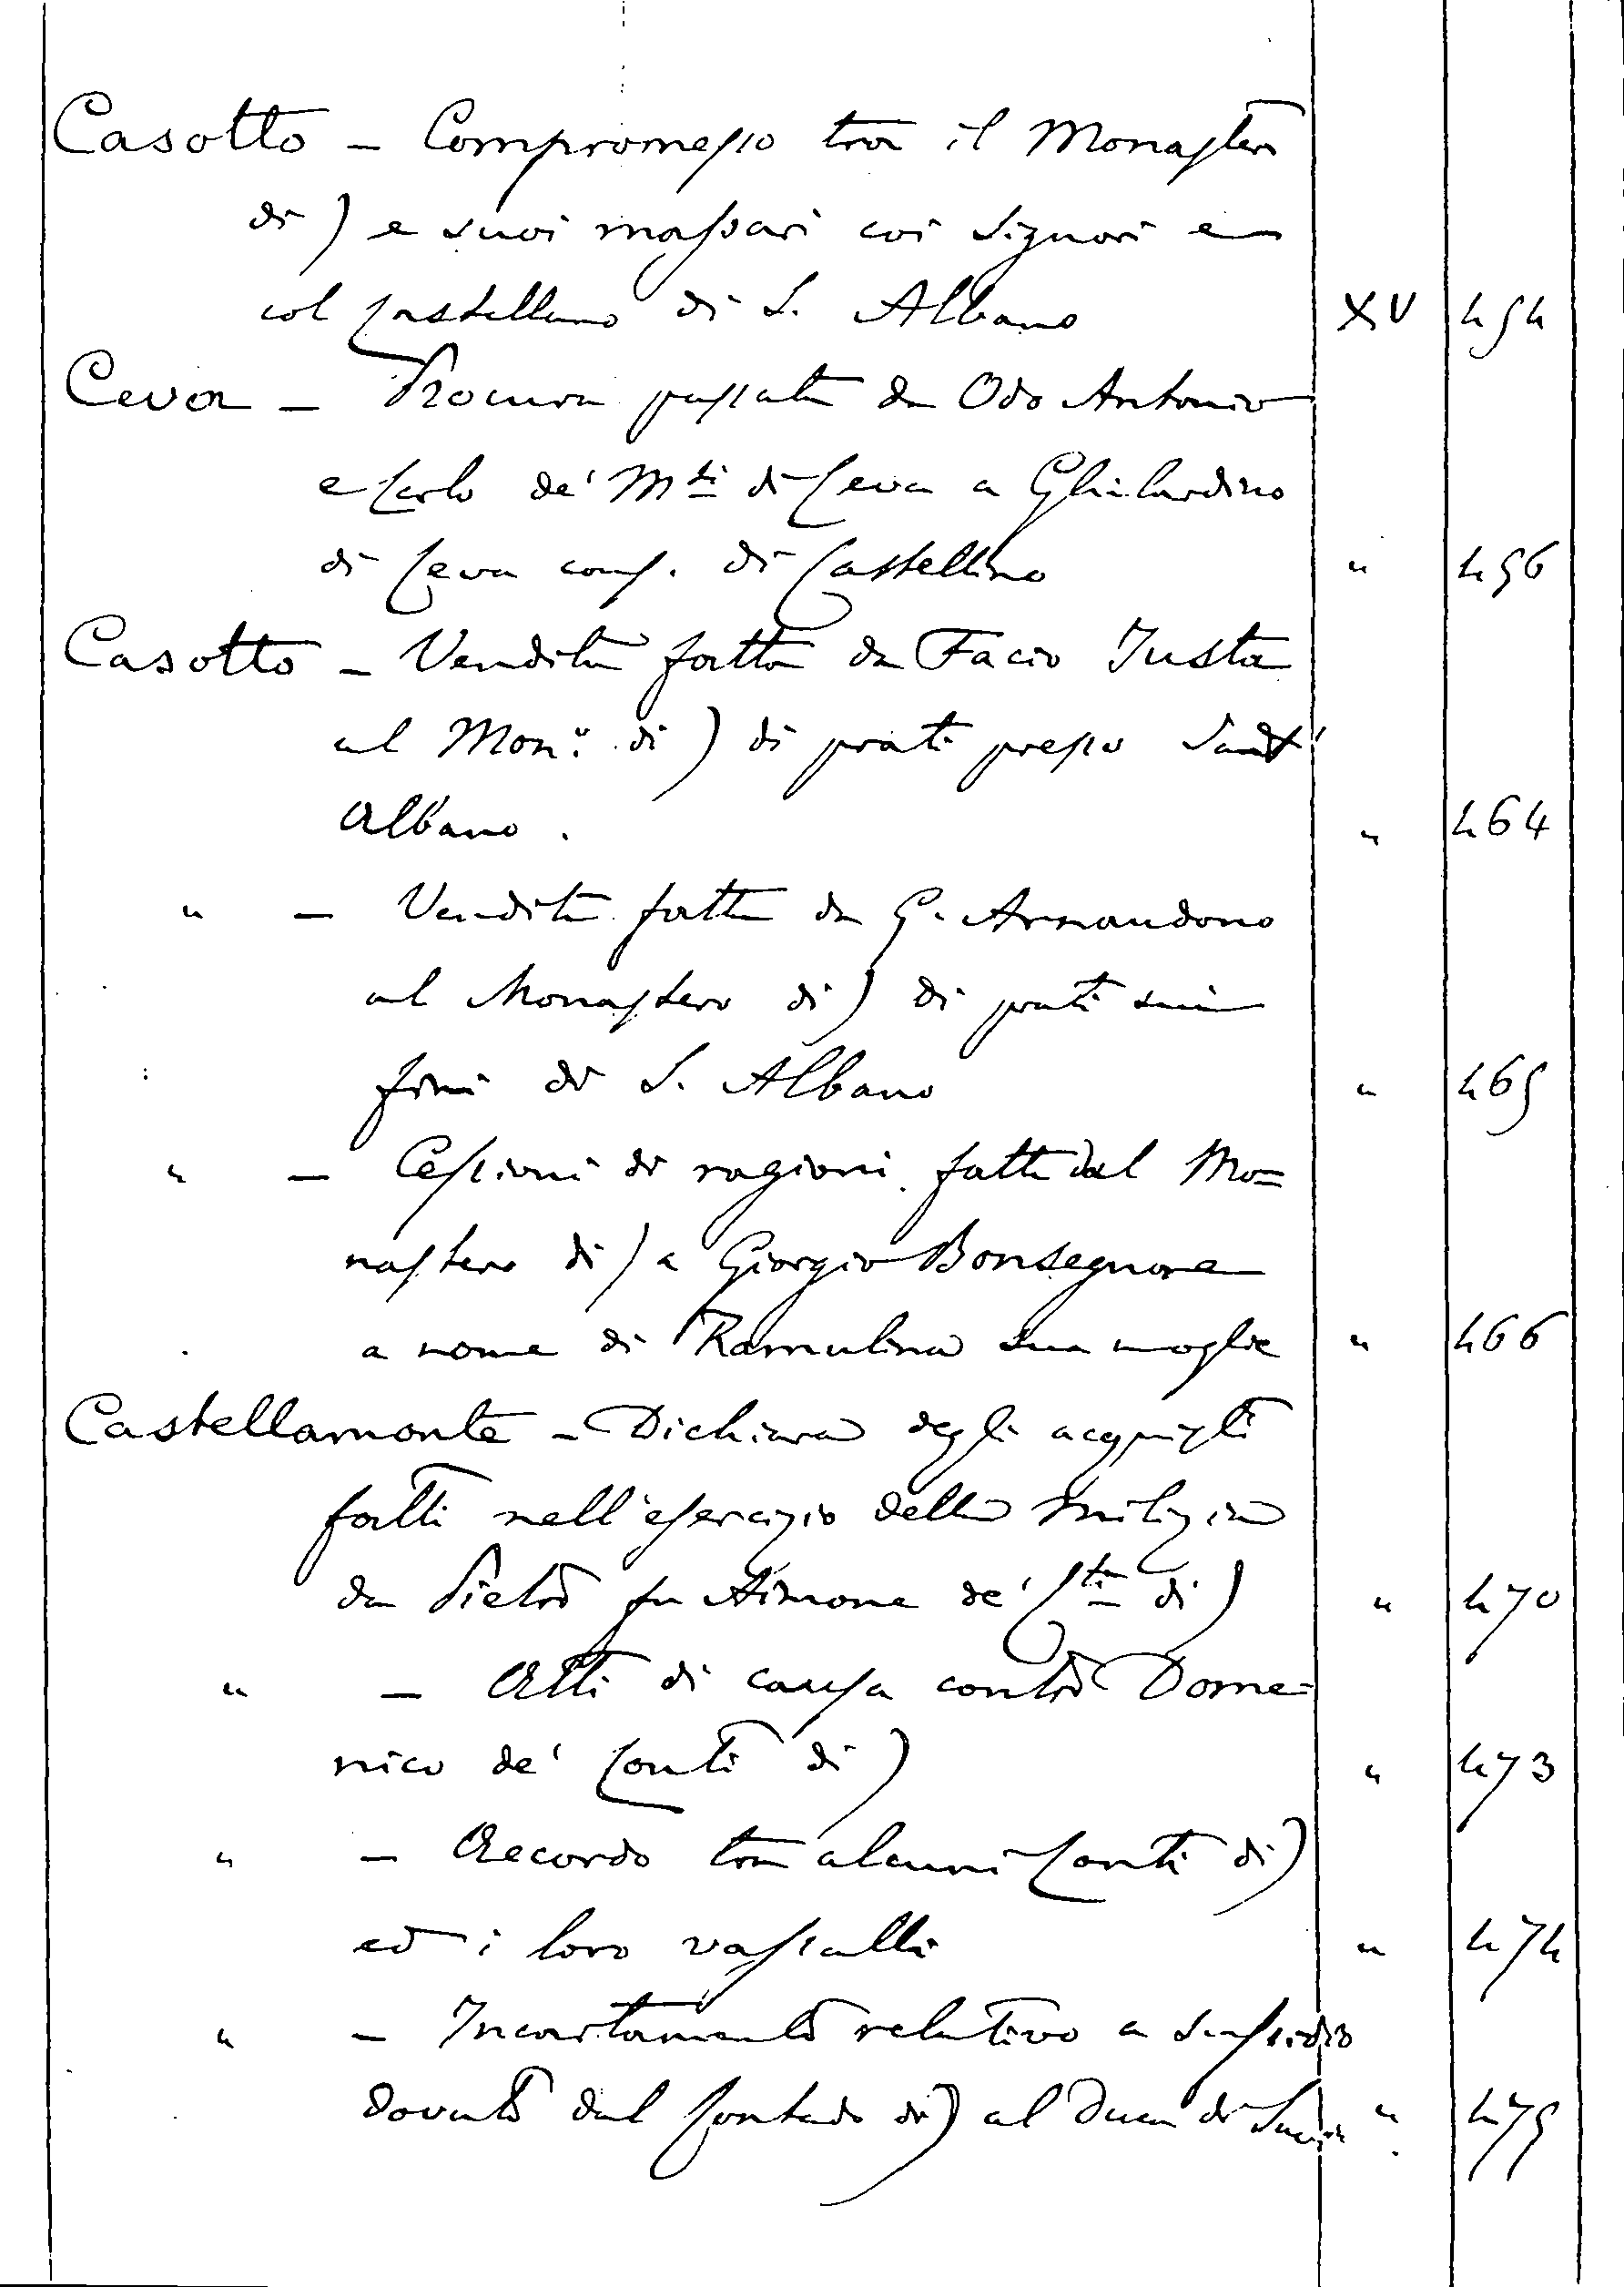 Casotto – Compromesso tra il Monastero
di ) e suoi massari coi Signori e
col Castellano di S. Albano XV 454
Ceva – Procura passata da Odo Antonio
e Carlo de' Msi di Ceva a Ghilardino
di Ceva cons. di Castellino " 456
Casotto – Vendita fatta da Facio Justa
al Mono: di ) di prati presso Sant'
Albano . " 464
" – Vendita fatta da G. Armandono
al Monastero di ) di prati sui
fini di S. Albano " 465
" – Cessioni di ragioni fatte dal Mo=
nastero di ) a Giorgio Bonsegnore
a nome di Ramulina sua moglie " 466
Castellamonte – Dichiara degli acquisti
fatti nell'esercizio della milizia
da Pietro fu Aimone de' Cti di ) " 470
" – Atti di causa contro Dome=
nico de' Conti di ) " 473
" – Accordo tra alcuni Conti di )
ed i loro vassalli " 474
" – Incartamento relativo a sussidio
dovuto dal Contado di ) al Duca di Savoia " 475